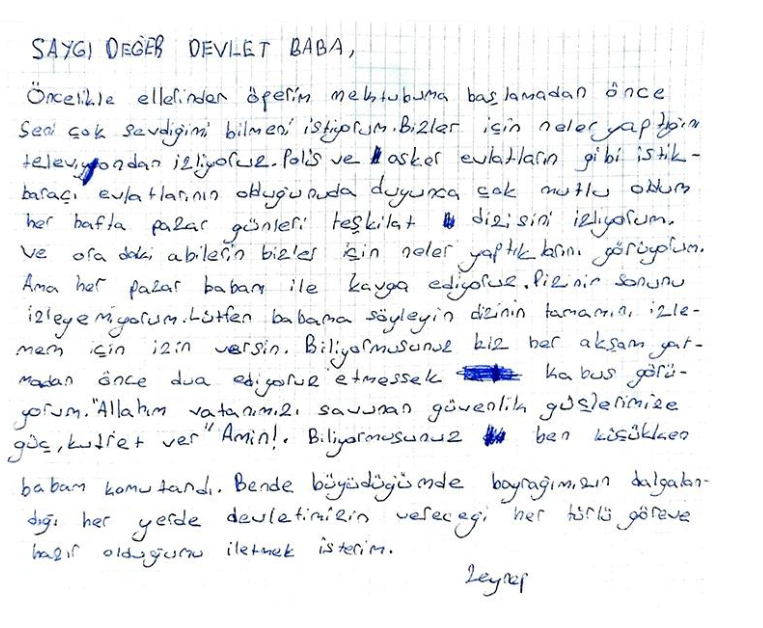 SAYGI DEĞER DEVLET BABA,
Öncelikle ellerinden öperim mektubuma başlamadan önce
Seni çok sevdiğimi bilmeni istiyorum. Bizler için neler yaptığını
televiyondan izliyoruz. Polis ve asker evlatların gibi istik-
baraçı evlatlarının olduğunuda duyunca çok mutlu oldum
her hafta pazar günleri teşkilat dizisini izliyorum.
Ve ora daki abilerin bizler için neler yaptıklarını görüyorum.
Ama her pazar babam ile kavga ediyoruz. Dizinin sonunu
izleyemiyorum. Lütfen babama söyleyin dizinin tamamını izle-
mem için izin versin. Biliyormusunuz biz her akşam yat-
madan önce dua ediyoruz etmessek kabus görü-
yorum. "Allahım vatanımızı savunan güvenlik güçlerimize
güç, kudret ver" Amin!. Biliyormusunuz ben küçükken
babam komutandı. Bende büyüdüğümde bayrağımızın dalgalan-
dığı her yerde devletimizin vereceği her türlü göreve
hazır olduğumu iletmek isterim.
Zeynep